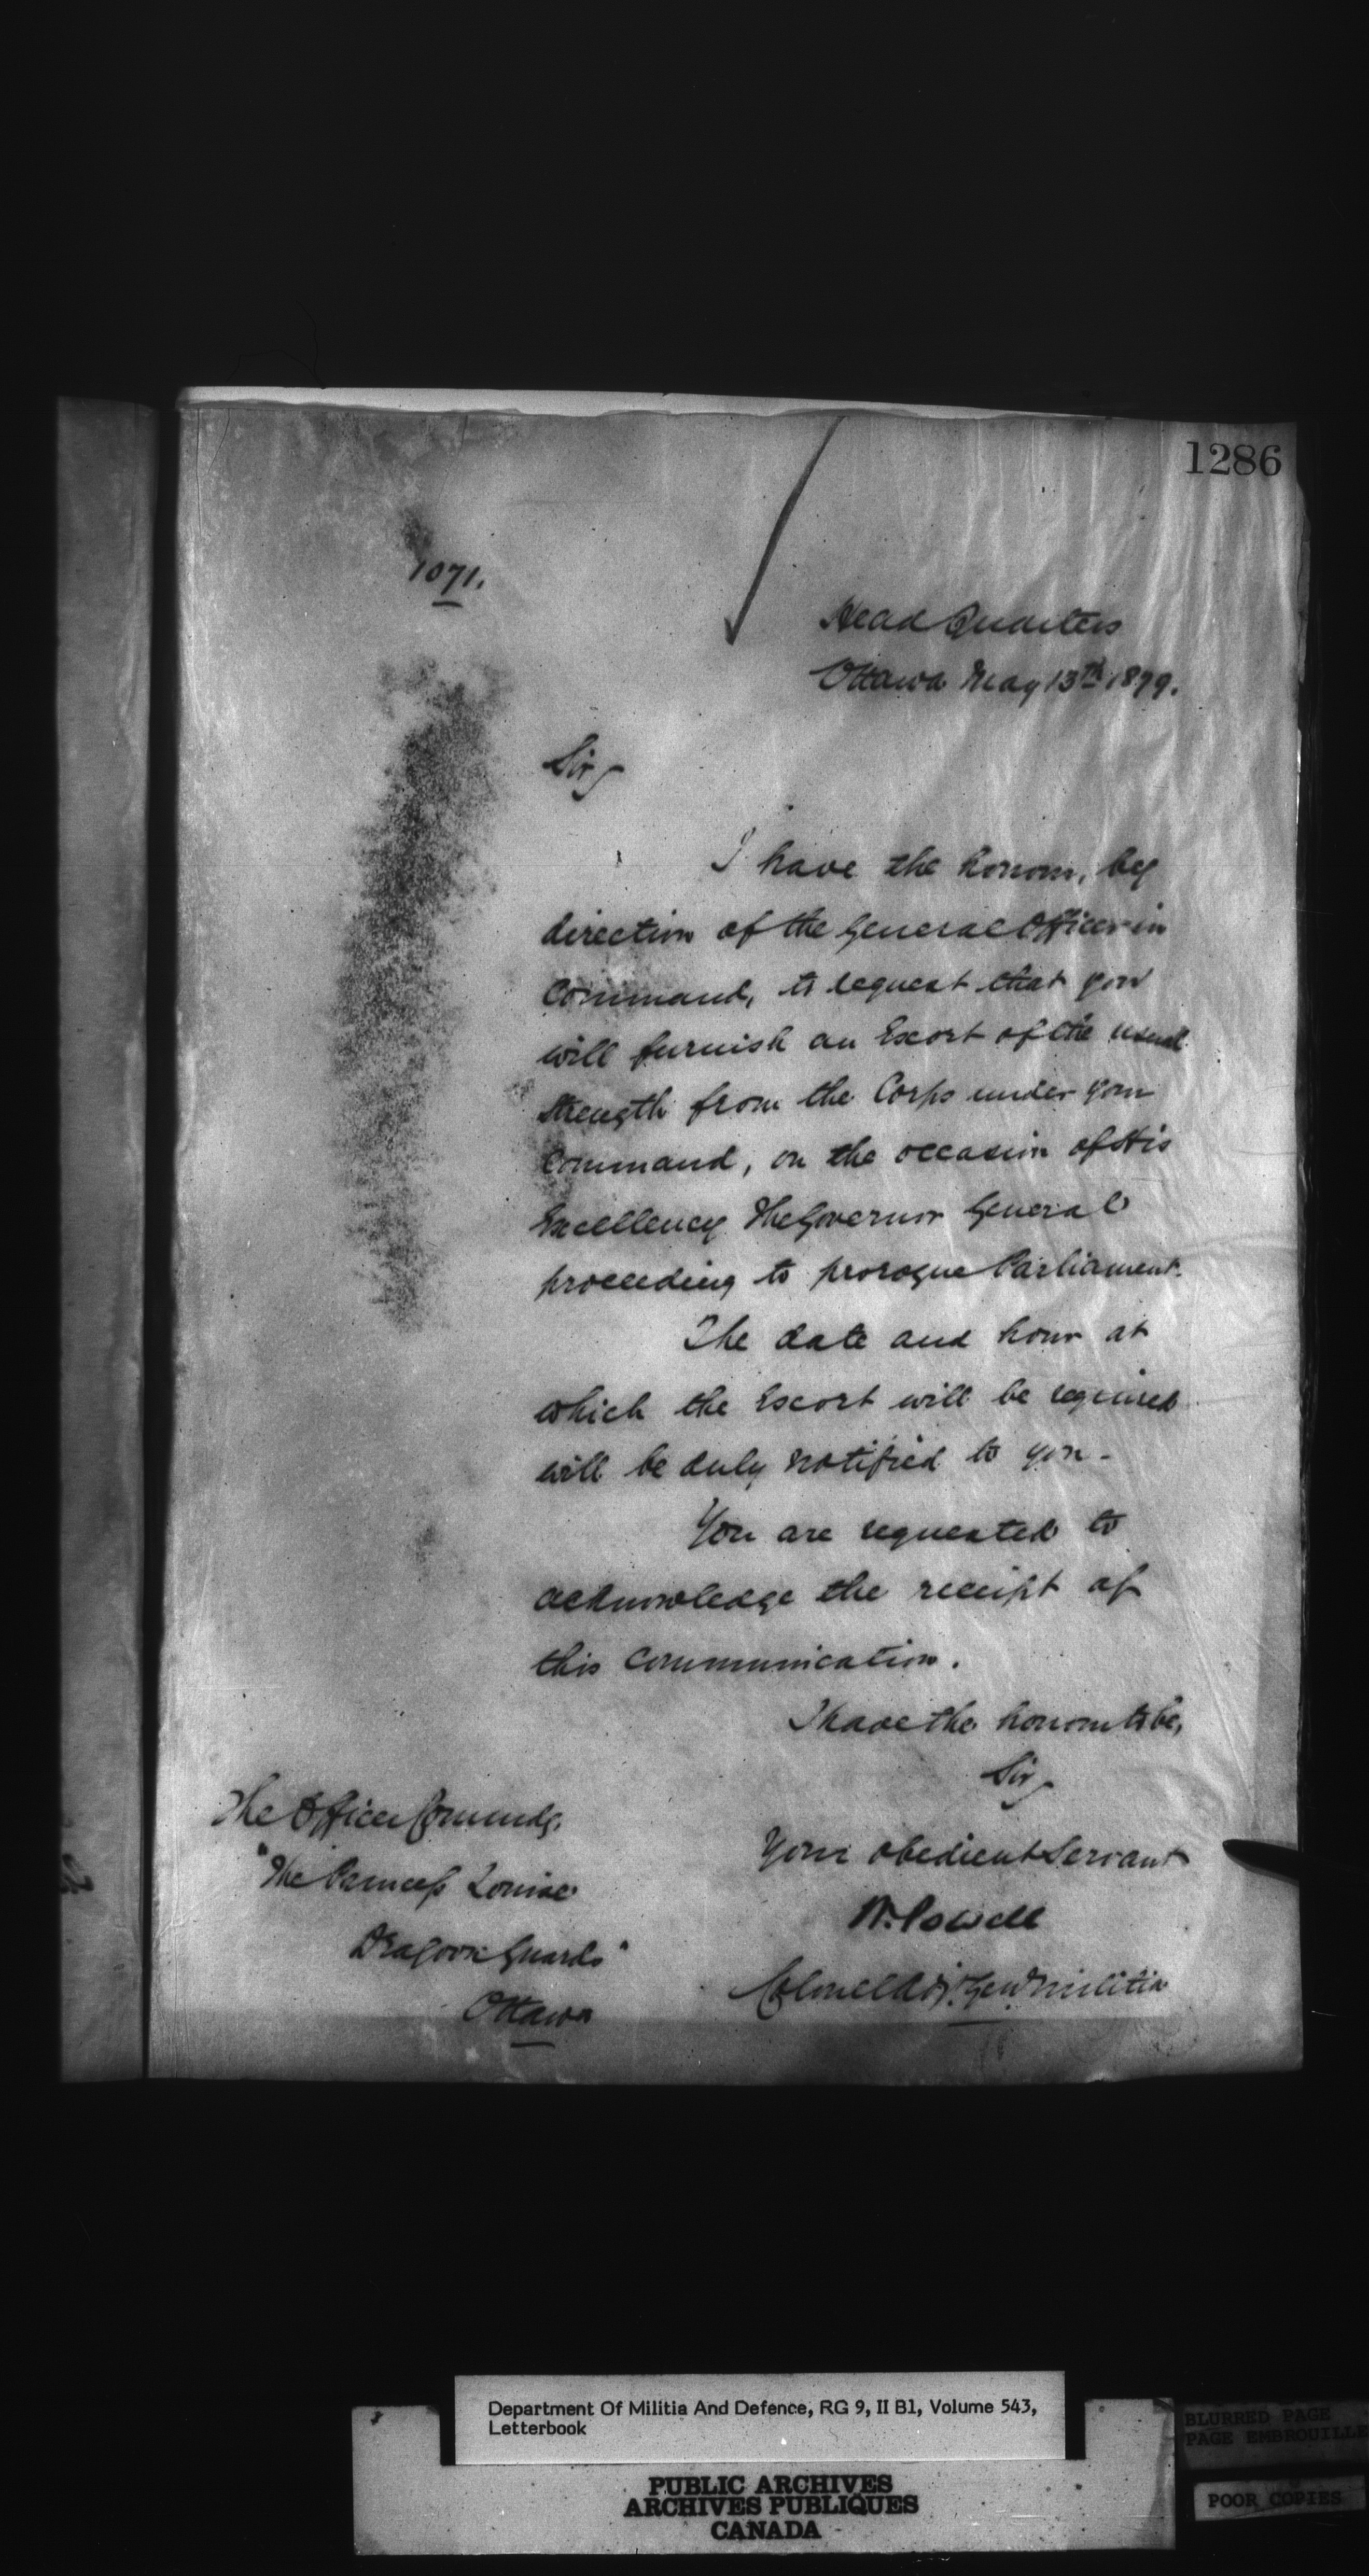 1286
1071.
Head Quarters
Ottawa May 13th 1879.
Sir,
I have the honour, by
direction of the General Officer in
Command, to request that you
will furnish an Escort of the usual
strength from the Corps under your
Command, on the occasion of His
Excellency The Governor General
proceeding to prorogue Parliament.
The date and hour at
which the Escort will be required
will be duly notified to you -
You are requested to
acknowledge the receipt of
this Communication.
I have the honour to be,
Sir,
Your obedient Servant
W. Powell
Colonel Adj. Genl Militia
The Officer Commdg.
"The Princess Louise
Dragoon Guards"
Ottawa
Department Of Militia And Defence, RG 9, II B1, Volume 543,
Letterbook
PUBLIC ARCHIVES
ARCHIVES PUBLIQUES
CANADA
BLURRED PAGE
PAGE EMBROUILLE
POOR COPIES